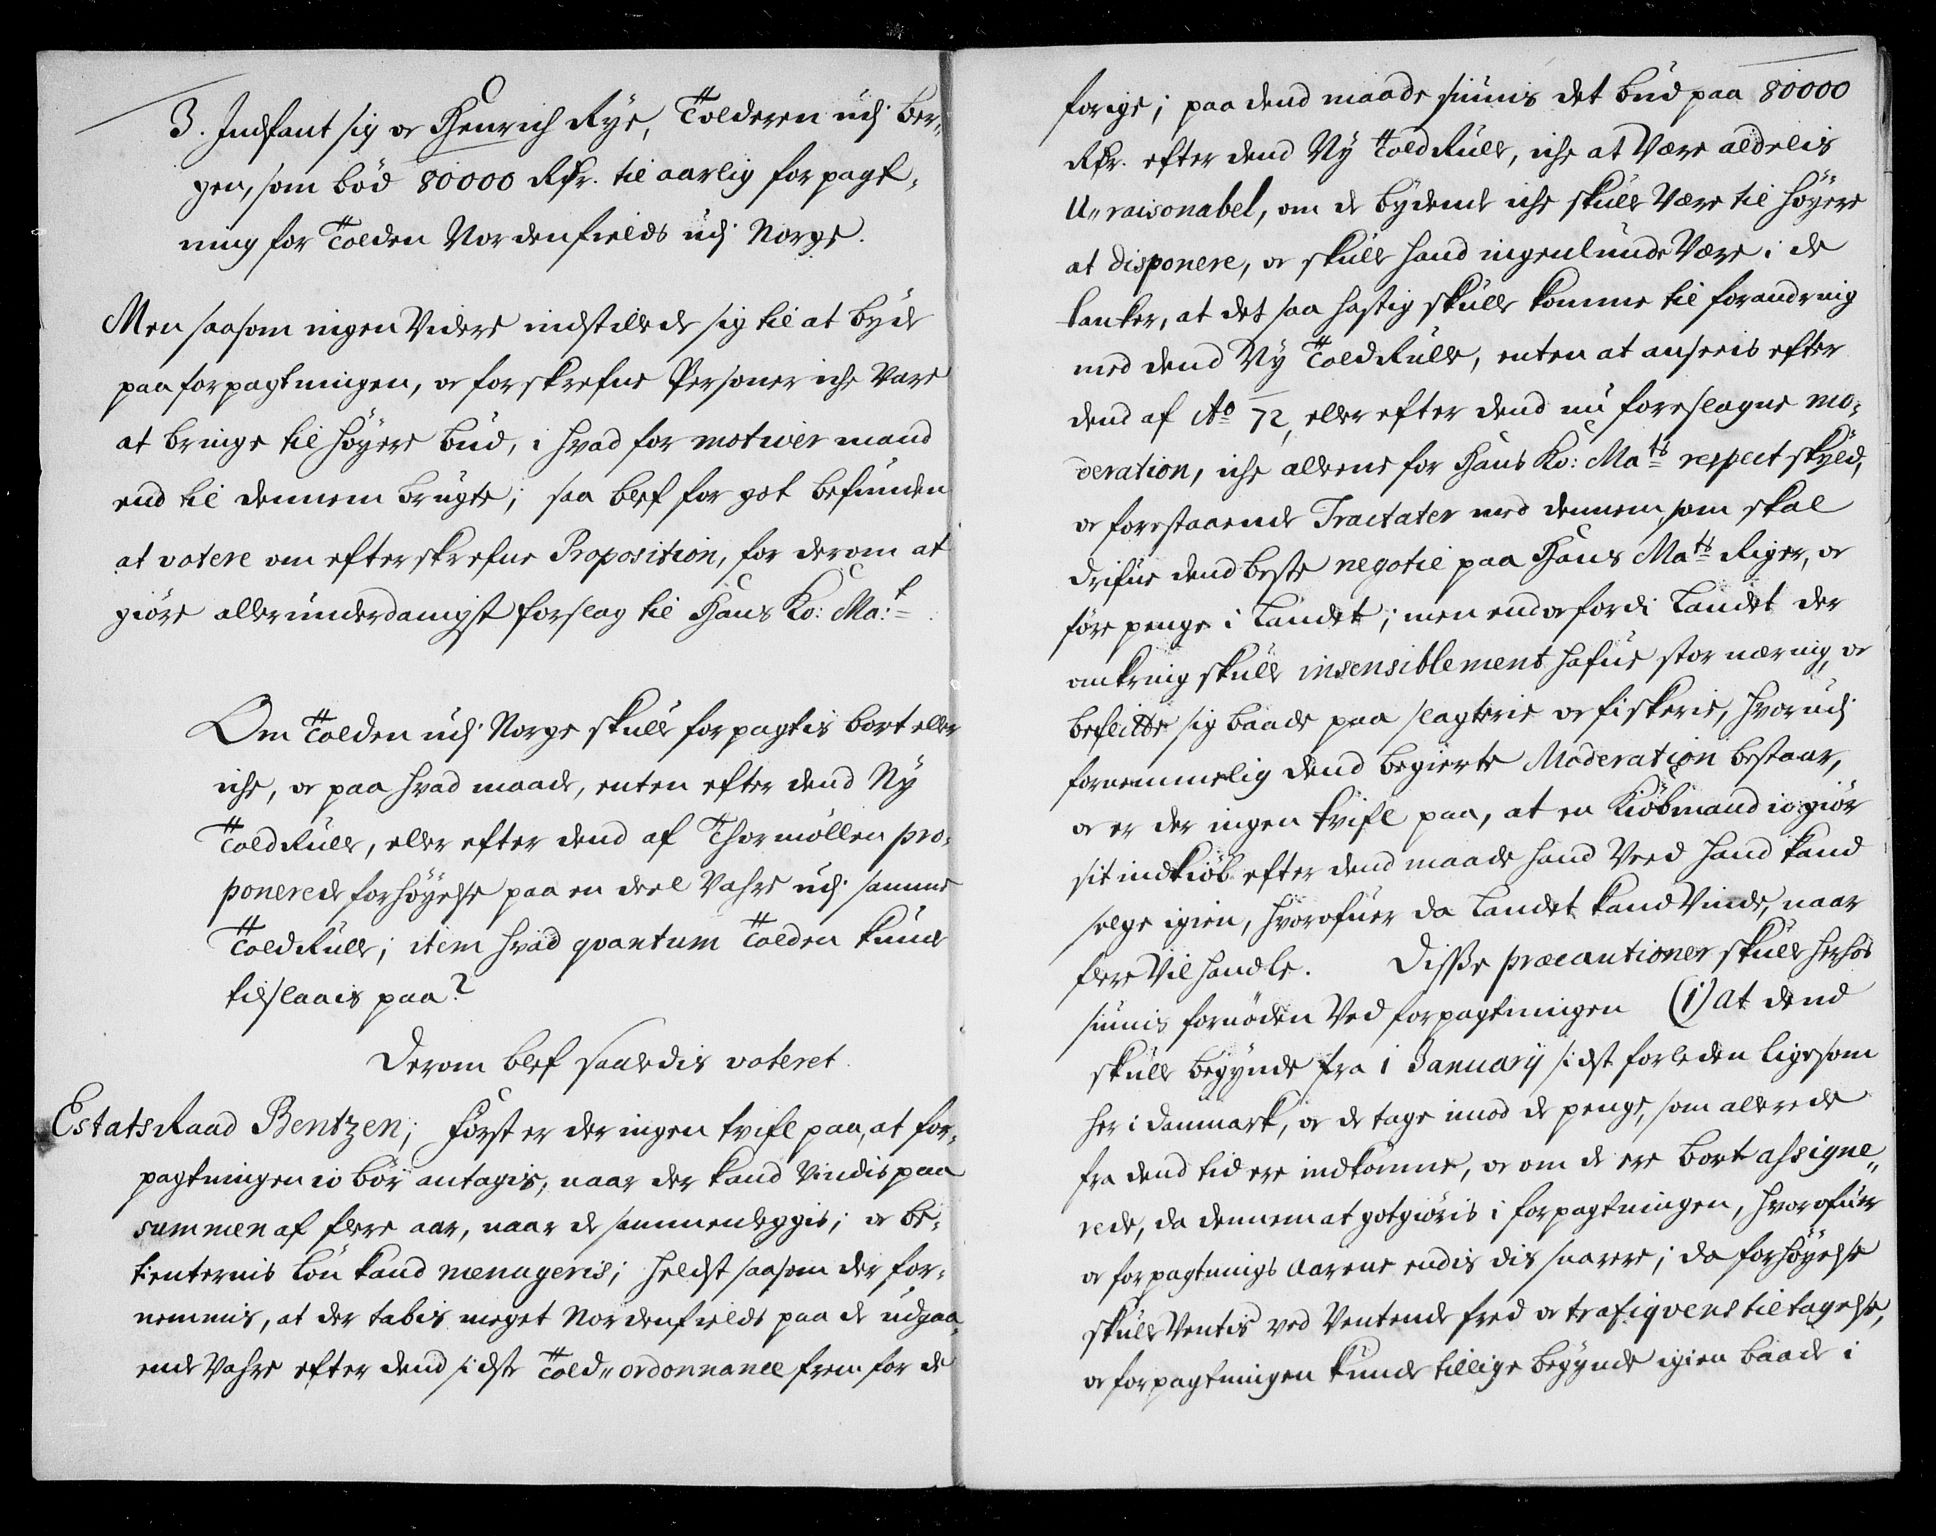 3. Indfant sig oc Henrich Rye, Tolderen udj Ber„
gen, som bød 80000 Rdr. til aarlig forpagt„
ning for Tolden Nordenfields udj Norge.
Men saasom ingen Videre indstillede sig til at byde
paa forpagtningen, oc forskrefne Personer iche Vare
at bringe til høyere bud, i hvad for motiver mand
end til dennem brugte; saa blef for got befunden
at votere om efterskrefne Proposition, for derom at
giöre allerunderdanigst forslag til Hans Ko: Ma:t
Om Tolden udj Norge skulle forpagtis bort eller
iche, oc paa hvad maade, enten efter dend Ny
Told Rulle, eller efter dend af Thormøllen pro„
ponerede forhøyelse paa en deel Vahre udj samme
Told Rulle; item hvad qvantum Tolden kunde
tilslaais paa?
Derom blef saaledis voteret.
Estats Raad Bentzen; Først er der ingen tvifl paa, at for„
pagtningen io bör antagis, naar der kand Vindis paa
summen af flere aar, naar de sammenleggis; oc be„
tienternis lön kand menageris; heldst saasom der for„
nemmis, at der tabis meget Nordenfields paa de udgaa„
ende Vahre efter dend sidste Told„ordonnance frem for de
forige; paa dend maade siunis det bud paa 80000
Rdr. efter dend Ny Told Rulle, iche at Være aldelis
U„raisonabel, om de bydende iche skulle Være til høyere
at disponere, oc skulle hand ingenlunde Være i de
tanker, at det saa hastig skulle komme til forandring
med dend Ny Told Rulle, enten at anseeis efter
dend af Ao 72, eller efter dend nu foreslagne mo„
deration, iche alleene for Hans Ko: Mats respect skyld,
oc forestaaende Tractater med dennem som skal
drifue dend beste negotie paa Hans Mats Riger, oc
före penge i Landet; men end oc fordi Landet der
omkring skulle insensiblement hafue stor næring, oc
beflitte sig baade paa slagterie oc fiskerie, hvorudj
fornemmelig dend begierte Moderation bestaar,
oc er der ingen tvifl paa, at en Kiöbmand io giör
sit indkiöb efter dend maade hand Veed hand kand
selge igien, hvorofuer da Landet kand Vinde, naar
flere Vil handle. Disse præcautioner skulle herhos
siunis fornöden Ved forpagtningen (1) At dend
skulle begynde fra 1 Januarij sidst forleden ligesom
her i Danmark, oc de tage imod de penge, som allerede
fra dend tid ere indkomne, oc om de ere bort assigne„
rede, da dennem at gotgiöris i forpagtningen, hvorofuer
oc forpagtnings Aarene endis dis snarere; da forhøyelse
skulle Ventis ved Ventende fred oc trafiqvens tiltagelse,
oc forpagtningen kunde tillige begynde igien baade i